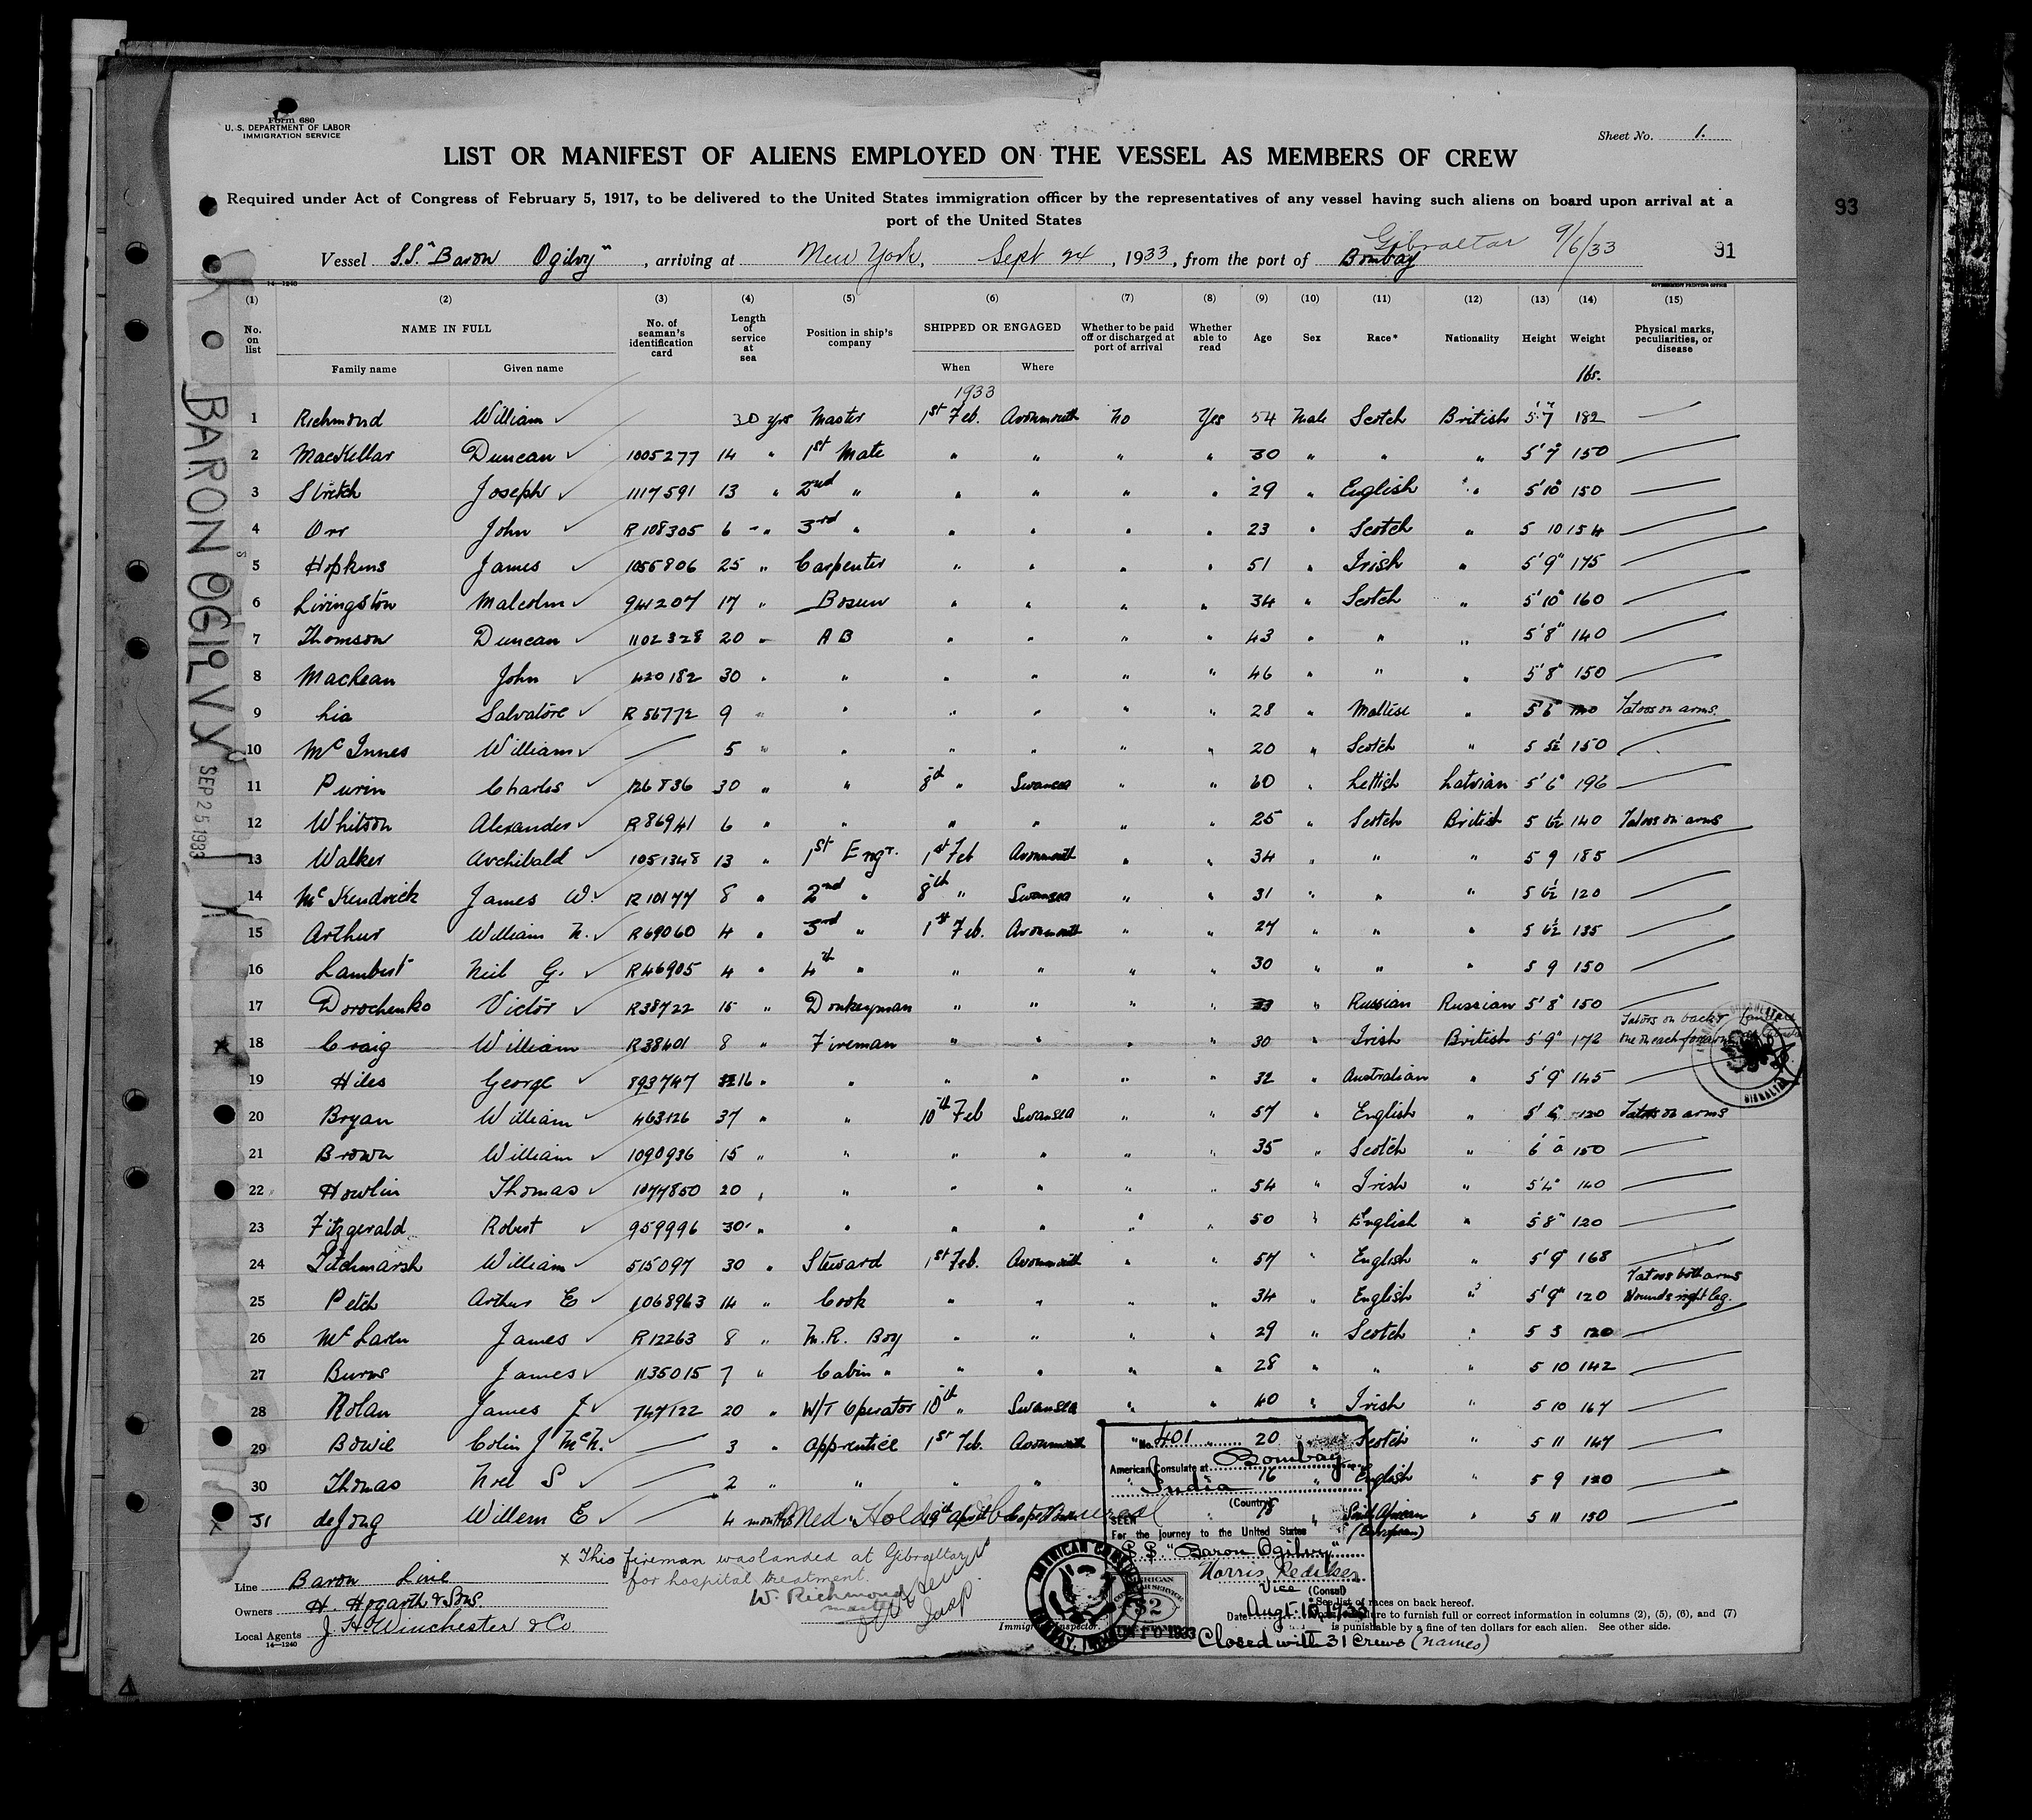 Form 680
U. S. DEPARTMENT OF LABOR
IMMIGRATION SERVICE
Sheet No. 1.
LIST OR MANIFEST OF ALIENS EMPLOYED ON THE VESSEL AS MEMBERS OF CREW
Required under Act of Congress of February 5, 1917, to be delivered to the United States immigration officer by the representatives of any vessel having such aliens on board upon arrival at a
port of the United States
93
Gibraltar 9/6/33
Vessel S.S. "Baron Ogilvy", arriving at New York, Sept 24, 1933, from the port of Bombay 91
14—1240
GOVERNMENT PRINTING OFFICE
(1) (2) (3) (4) (5) (6) (7) (8) (9) (10) (11) (12) (13) (14) (15)
No. on list NAME IN FULL No. of seaman's identification card Length of service at sea Position in ship's company SHIPPED OR ENGAGED Whether to be paid off or discharged at port of arrival Whether able to read Age Sex Race* Nationality Height Weight Physical marks, peculiarities, or disease
Family name Given name When Where lbs.
1933
1 Richmond William 30 yrs Master 1st Feb. Avonmouth No Yes 54 Male Scotch British 5'7" 182
2 MacKellar Duncan 1005277 14 " 1st Mate " " " " 30 " " " 5'7" 150
3 Stretch Joseph 1117591 13 " 2nd " " " " " 29 " English " 5'10" 150
4 Orr John R 108305 6 " 3rd " " " " " 23 " Scotch " 5 10 154
5 Hopkins James 1055806 25 " Carpenter " " " " 51 " Irish " 5'9" 175
6 Livingston Malcolm 941207 17 " Bosun " " " " 34 " Scotch " 5'10" 160
7 Thomson Duncan 1102328 20 " A B " " " " 43 " " " 5'8" 140
8 MacLean John 420182 30 " " " " " " 46 " " " 5'8" 150
9 Lia Salvatore R 56772 9 " " " " " " 28 " Maltese " 5'6" Tatoos on arms.
10 McInnes William 5 " " " " " " 20 " Scotch " 5 5½ 150
11 Purin Charles 126836 30 " " 8th " Swansea " " 60 " Lettish Latvian 5'6" 196
12 Whitson Alexander R 86941 6 " " " " " " 25 " Scotch British 5 6½ 140 Tatoos on arms
13 Walker Archibald 1051348 13 " 1st Engr. 1st Feb Avonmouth " " 34 " " " 5 9 185
14 McKendrick James W. R 10177 8 " 2nd " 8th " Swansea " " 31 " " " 5 6½ 120
15 Arthur William N. R 69060 4 " 3rd " 1st Feb. Avonmouth " " 27 " " " 5 6½ 135
16 Lambert Neil G. R 46905 4 " 4th " " " " " 30 " " " 5 9 150
17 Dorochenko Victor R 38722 15 " Donkeyman " " " " 33 " Russian Russian 5'8" 150
18 Craig William R 38401 8 " Fireman " " " " 30 " Irish British 5'9" 172 Tatoos on back one on each forearm
19 Hiles George 893747 16 " " " " " " 32 " Australian " 5'9" 145
20 Bryan William 463126 37 " " 10th Feb Swansea " " 57 " English " 5'6 120 Tatoos on arms
21 Brown William 1090936 15 " " " " " " 35 " Scotch " 6'0" 150
22 Howlin Thomas 1077850 20 " " " " " " 54 " Irish " 5'4" 140
23 Fitzgerald Robert 959996 30 " " " " " " 50 " English " 5'8" 120
24 Titchmarsh William 515097 30 " Steward 1st Feb. Avonmouth " " 57 " English " 5'9" 168
25 Petch Arthur E 1068963 14 " Cook " " " " 34 " English " 5'9" 120 Tatoos both arms Wounds right leg.
26 McLaren James R 12263 8 " M.R. Boy " " " " 29 " Scotch " 5 3 120
27 Burns James 1135015 7 " Cabin " " " " " 28 " " " 5 10 142
28 Nolan James J 747122 20 " W/T Operator 10th " Swansea " " 40 " Irish " 5 10 167
29 Bowie Colin J McN. 3 " Apprentice 1st Feb. Avonmouth " 20 Scotch " 5 11 147
30 Thomas Noel S 2 " " " " " 16 " English " 5 9 120
31 de Jong Willem E 4 months 19th April 18 " South African (European) " 5 11 150
BARON OGILVY
SEP 25 1933
No. 401
American Consulate at Bombay
India
(Country)
SEEN
For the journey to the United States
S.S. "Baron Ogilvy"
Vice (Consul)
Date Augt. 10, 1933
AMERICAN CONSULATE
BOMBAY, INDIA
$2
Closed with 31 Crews (names)
x This fireman was landed at Gibraltar
for hospital treatment.
W. Richmond
master
Line Baron Line
Owners H. Hogarth & Sons.
Local Agents J H Winchester & Co
14—1240
Immigrant Inspector.
*See list of races on back hereof.
to furnish full or correct information in columns (2), (5), (6), and (7)
is punishable by a fine of ten dollars for each alien. See other side.